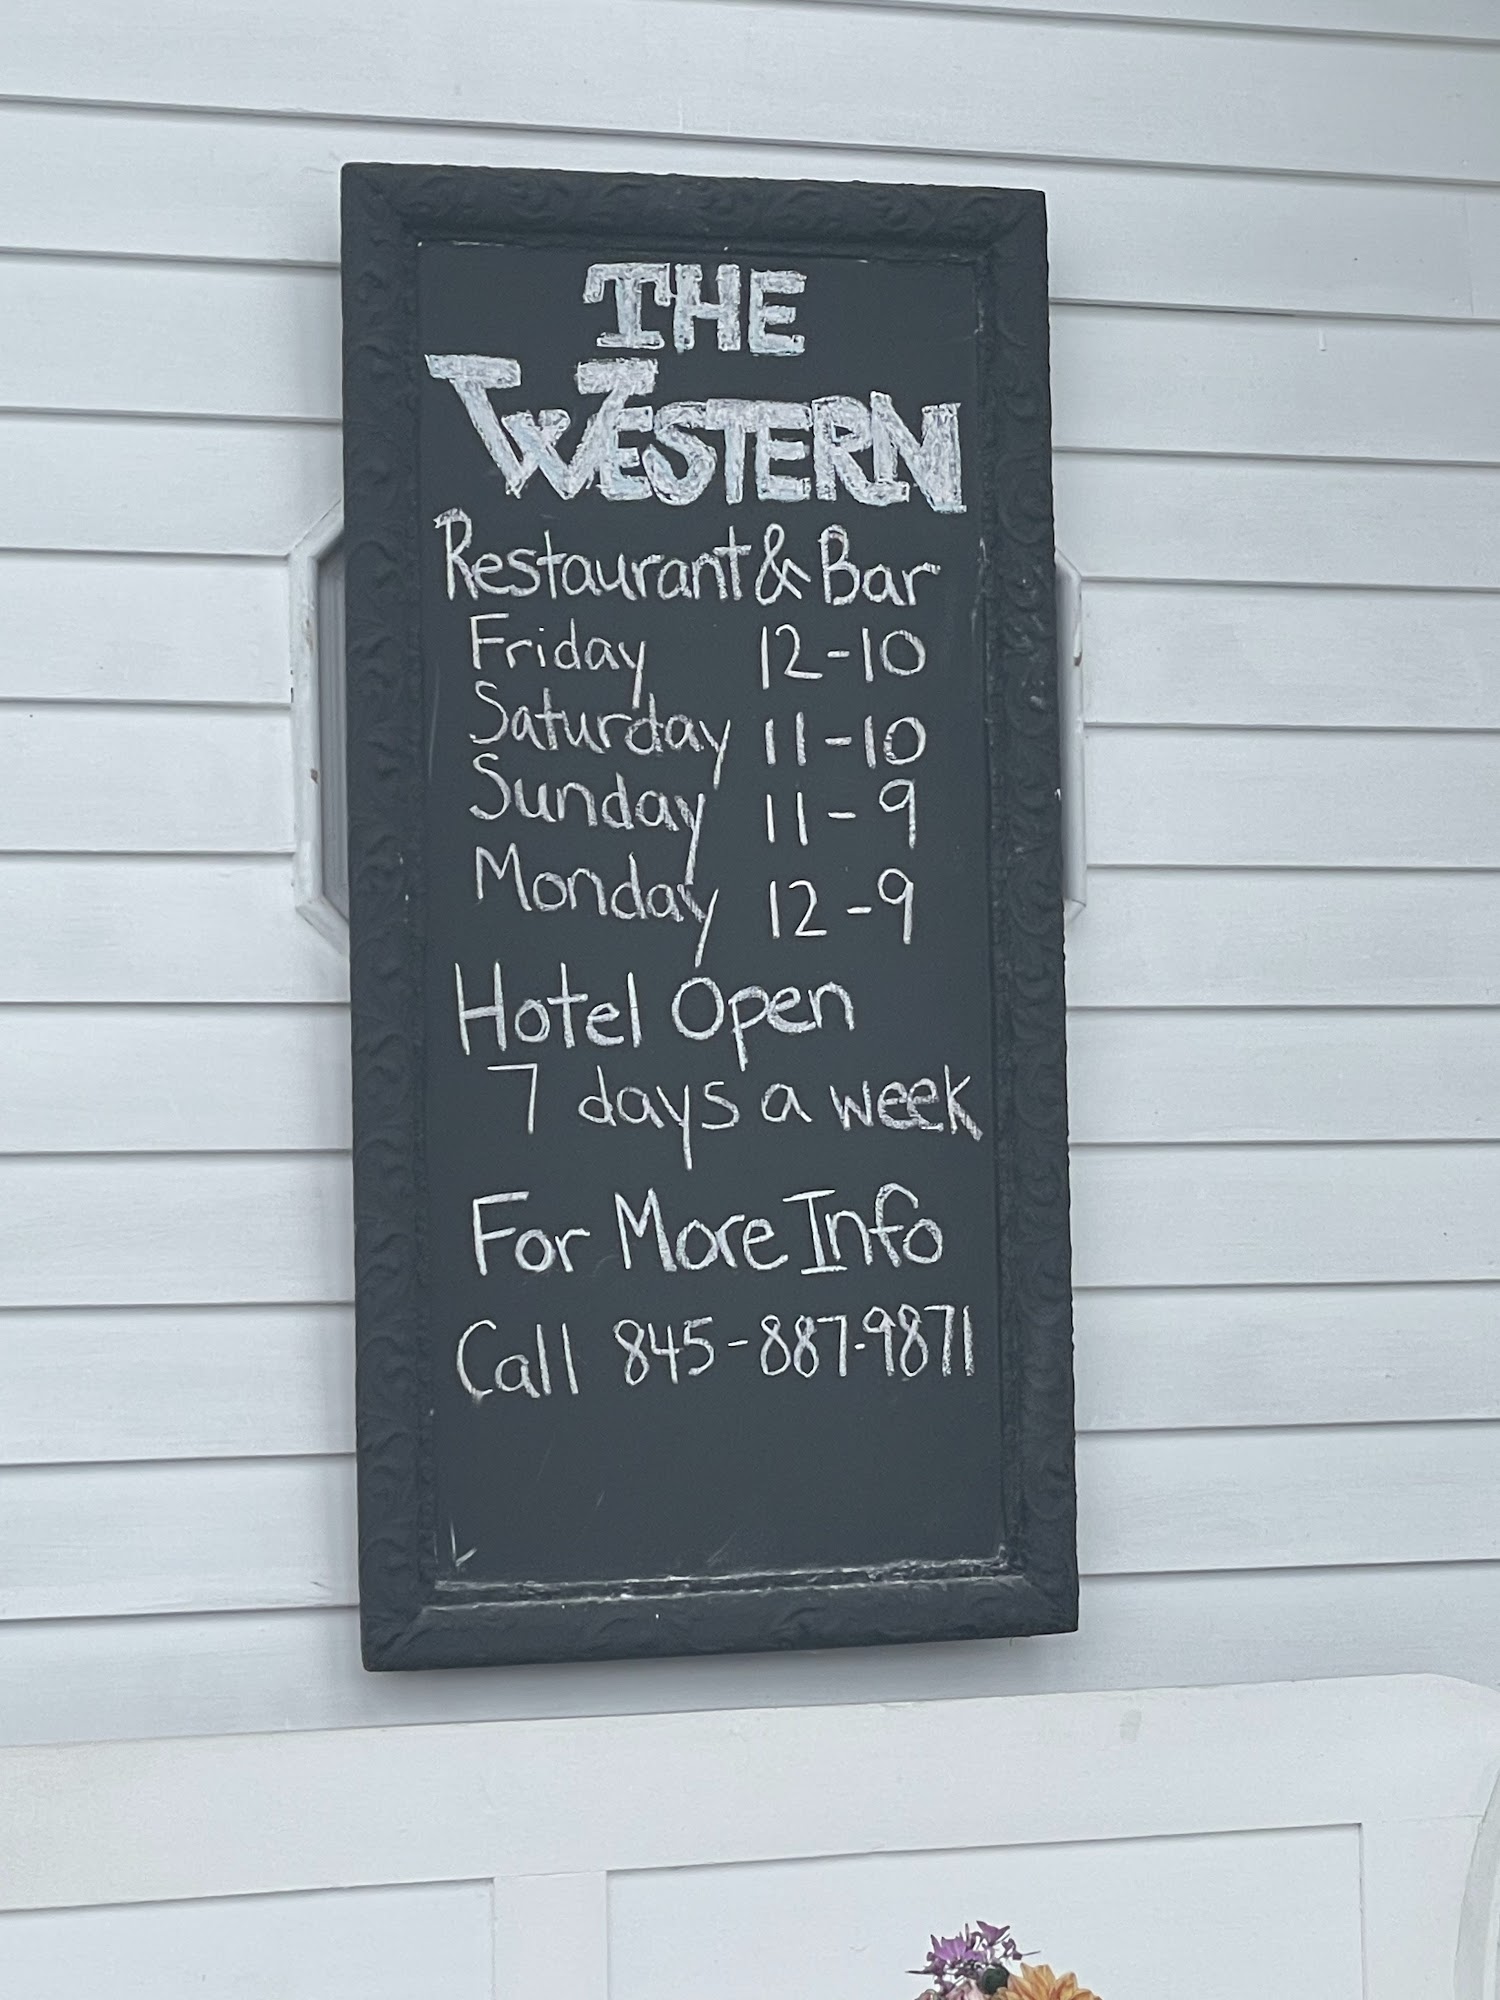 THE
WESTERN
Restaurant & Bar
Friday 12-10
Saturday 11-10
Sunday 11-9
Monday 12-9
Hotel Open
7 days a week
For More Info
Call 845-887-9871